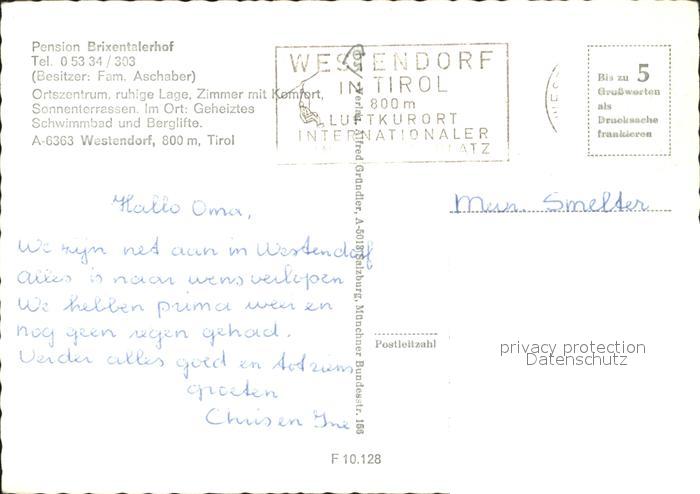 Pension Brixentalerhof
Tel. 0 53 34 / 303
(Besitzer: Fam. Aschaber)
Ortszentrum, ruhige Lage, Zimmer mit Komfort,
Sonnenterrassen. Im Ort: Geheiztes
Schwimmbad und Berglifte.
A-6363 Westendorf, 800 m, Tirol
WESTENDORF
IN TIROL
800 m
LUFTKURORT
INTERNATIONALER
Bis zu 5
Grußworten
als
Drucksache
frankieren
Hallo Oma,
We zijn net aan in Westendorf
alles is naar wens verlopen
We hebben prima weer en
nog geen regen gehad.
Verder alles goed en tot ziens
groeten
Chris en Ine
Verlag Alfred Gründler, A-5013 Salzburg, Münchner Bundesstr. 156
Smelter
Postleitzahl
privacy protection
Datenschutz
F 10.128